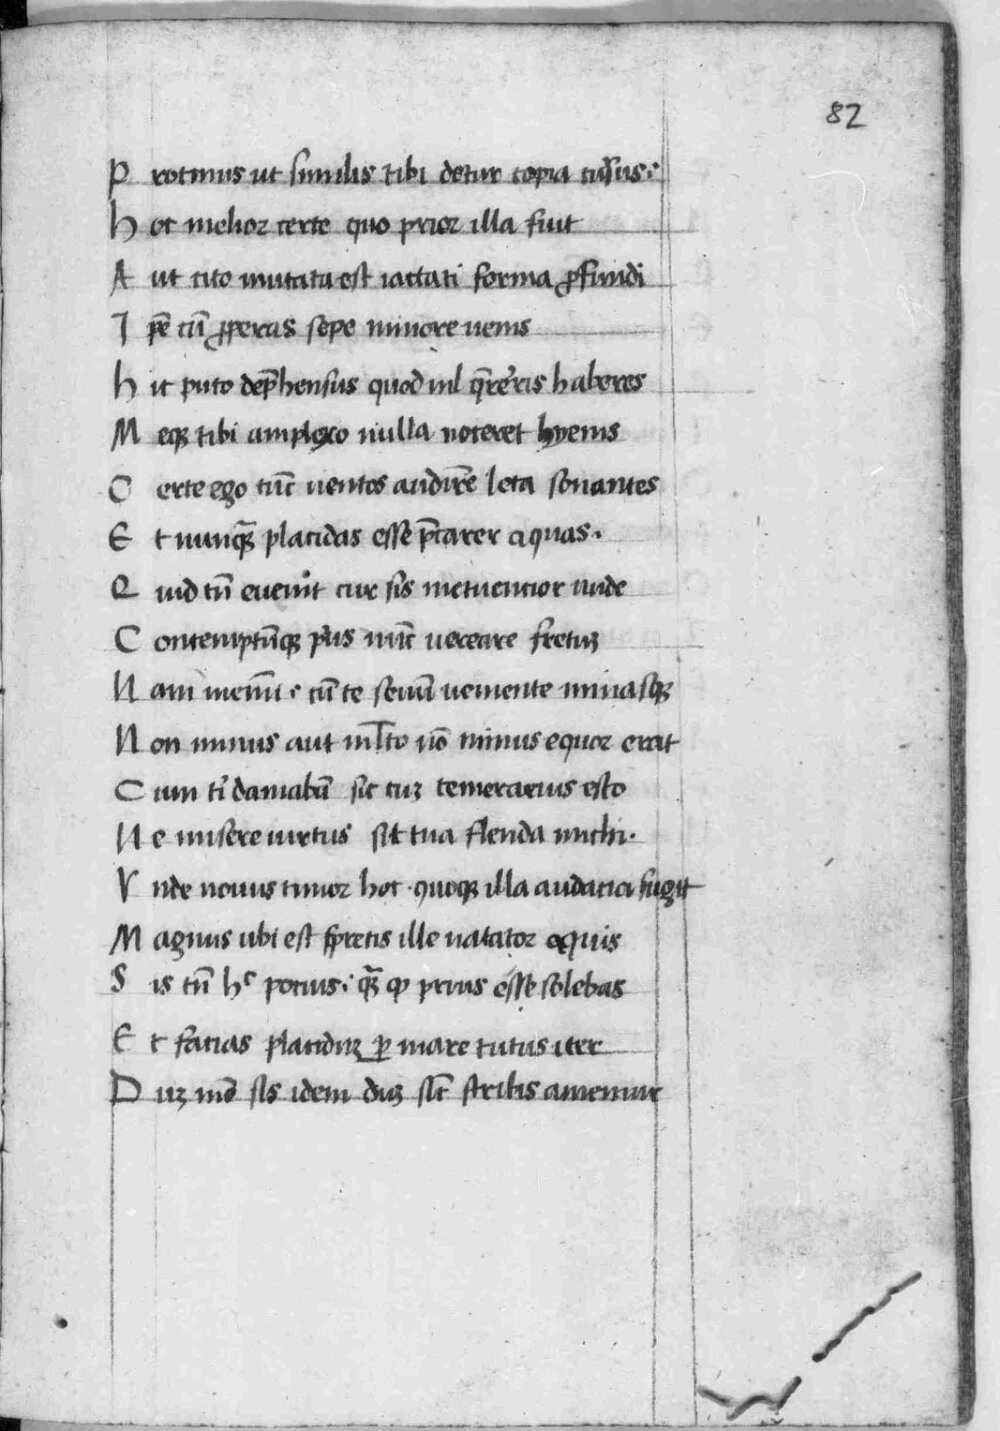 82
P rotinus ut similis tibi detur copia cursus
h oc melior certe quo prior illa fuit
A ut cito mutata est iactati forma ꝓfundi
I pe cū ꝓperas sepe minore uenis
h ic puto dep̄hensus quod nil q̄reris haberes
M eqꝫ tibi amplexo nulla noceret hyems
C erte ego tūc uentos audirē leta sonantes
E t nunqꝫ placidas esse p̄carer aquas.
Q uid tn̄ euenit cur sis metuencior unde
C ontemptūqꝫ pius nūc uereare fretuꝫ
N am memī cū te seuuꝫ ueniente minasqꝫ
N on minus aut mlto nō minus equor erat
C um ti clamabā sic tuꝫ temerarius esto
N e misere uirtus sit tua flenda michi.
V nde nouus timor hoc quoqꝫ illa audacia fugit
M agnus ubi est spretis ille natator aquis
S is tn̄ hͨ potius qꝫ ꝙ prius esse solebas
E t facias placiduꝫ ꝑ mare tutus iter
D uꝫ mō sis idem duꝫ sic̄ scribis amemur